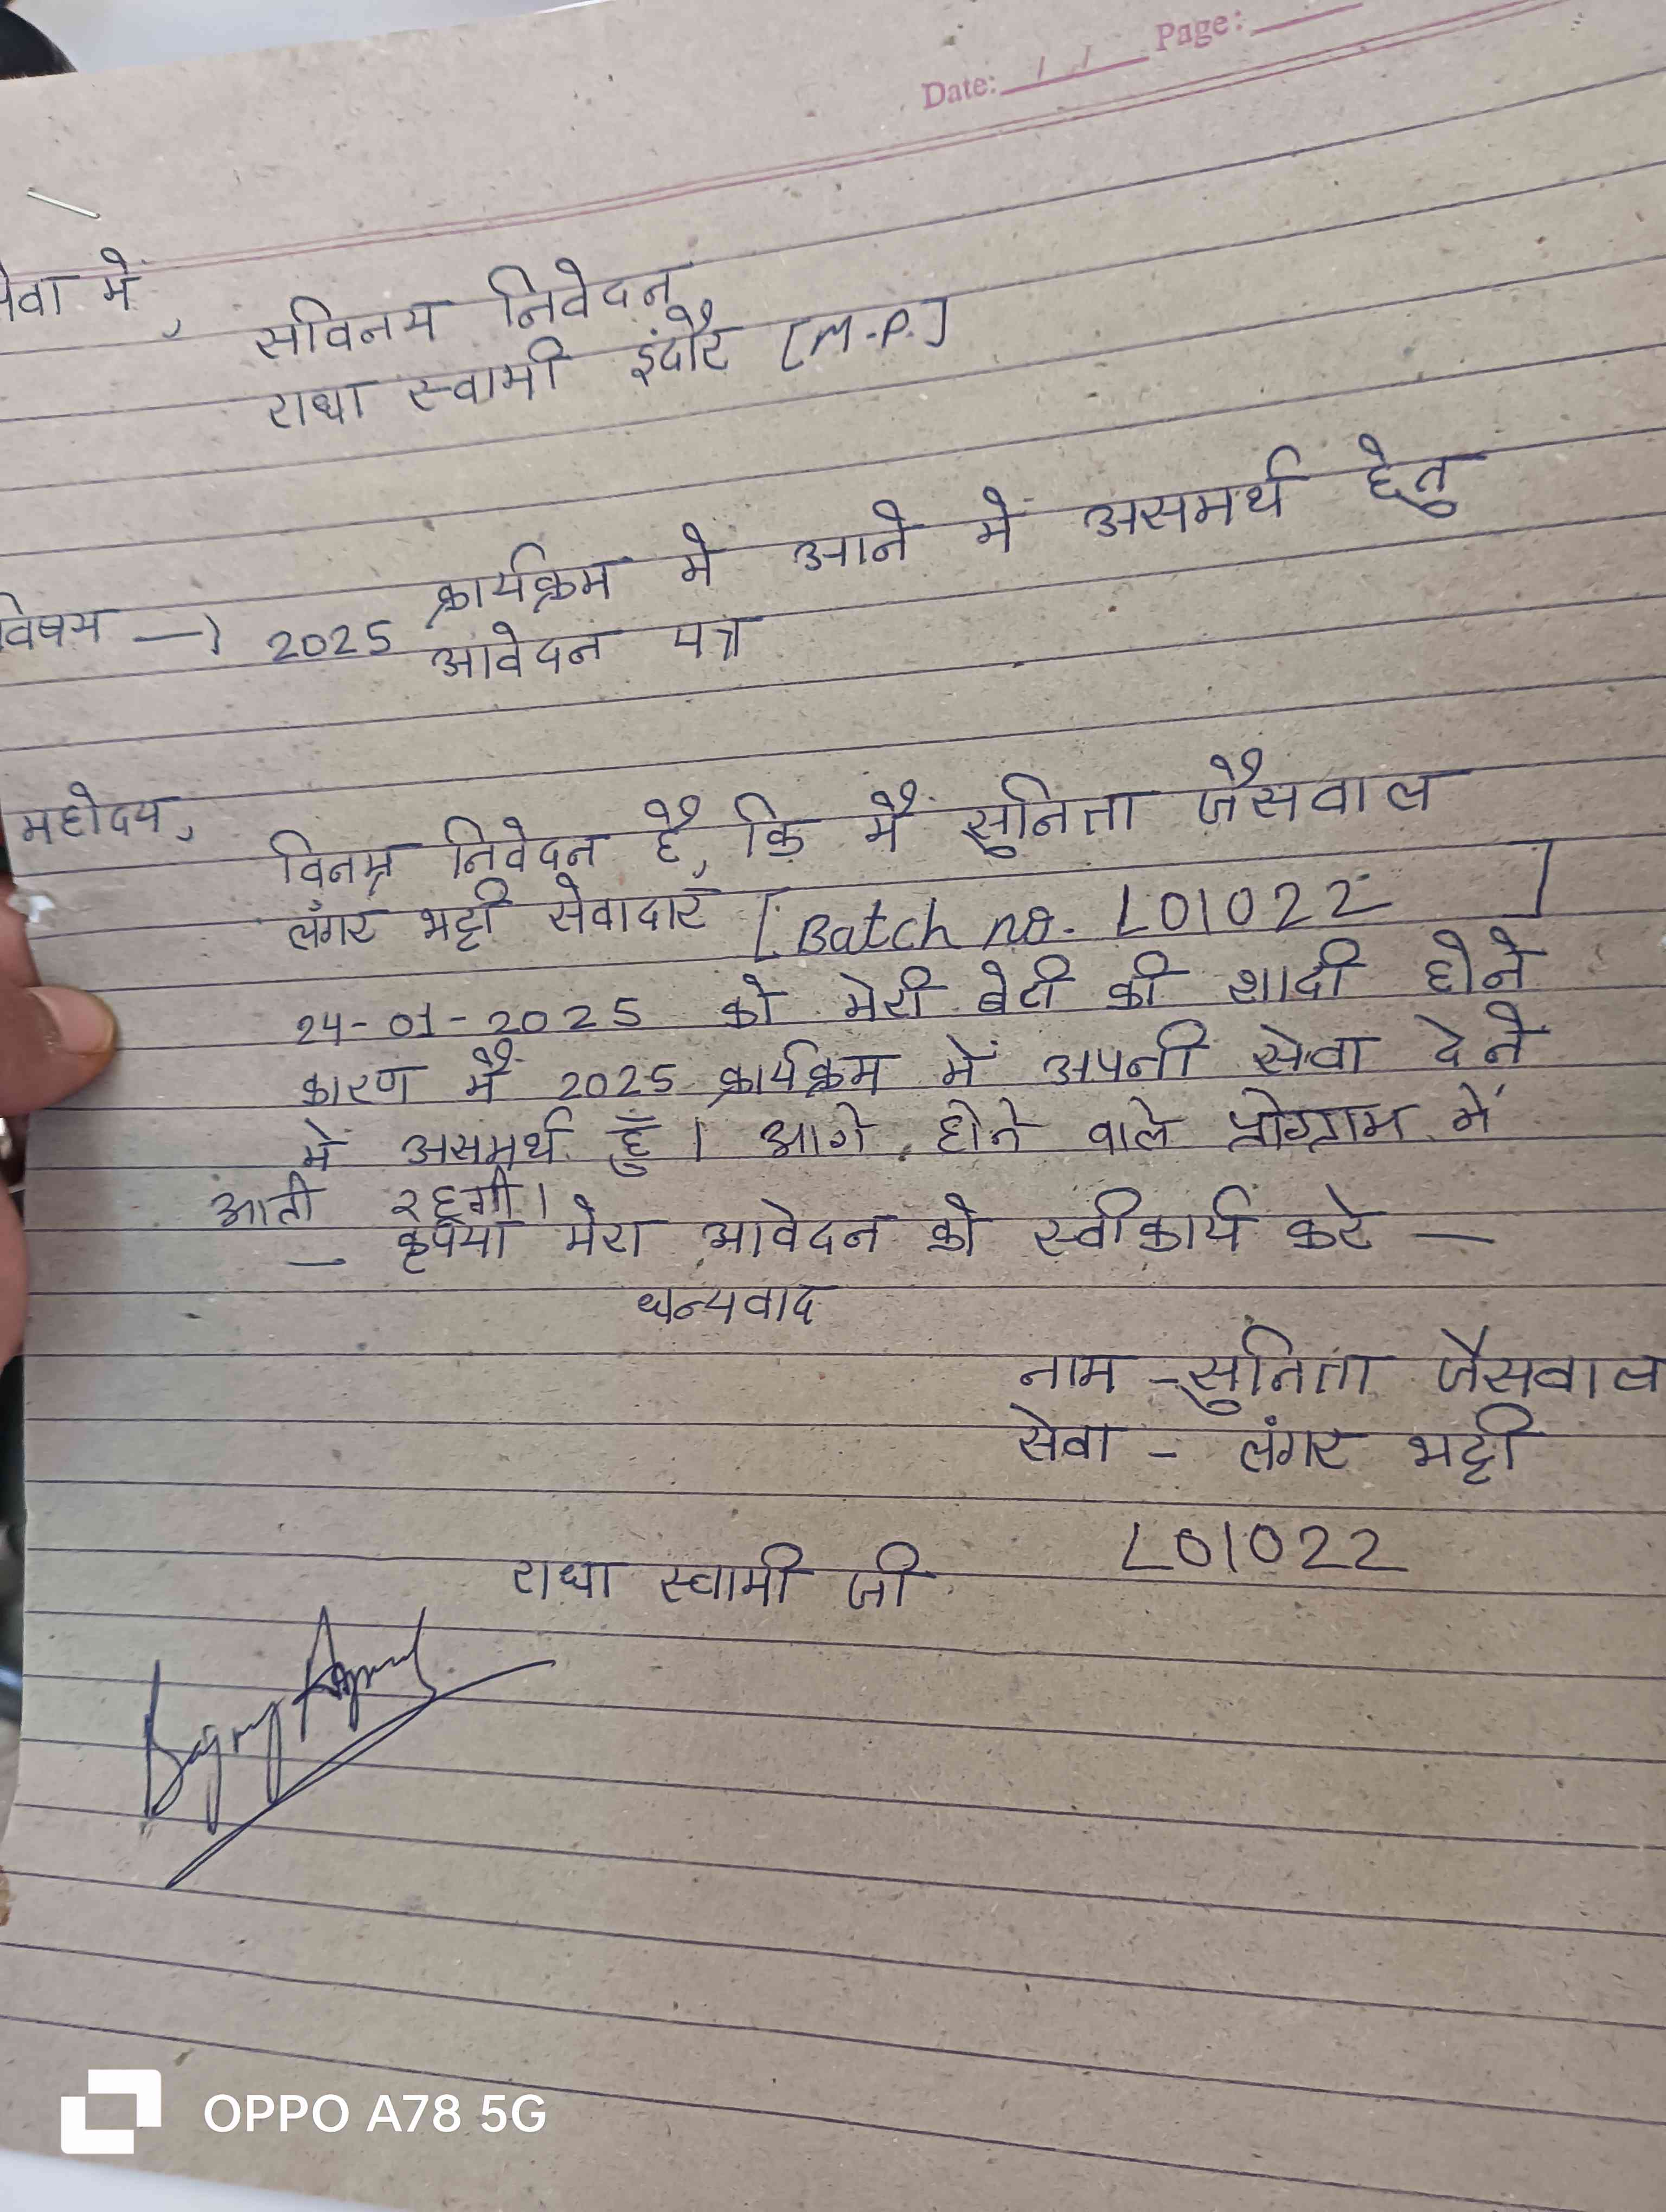 Date: / / Page:
सेवा में,
सविनय निवेदन
राधा स्वामी इंदौर [M.P.]
कार्यक्रम मे आने में असमर्थ हेतु
विषय —) 2025 आवेदन पत्र
महोदय,
विनम्र निवेदन है, कि मैं सुनिता जैसवाल
लंगर भट्टी सेवादार [Batch no. L01022 ]
24-01-2025 को मेरी बेटी की शादी होने
कारण मैं 2025 कार्यक्रम में अपनी सेवा देने
में असमर्थ हूँ। आगे होने वाले प्रोग्राम में
आती रहूगी।
— कृपया मेरा आवेदन को स्वीकार्य करे —
धन्यवाद
नाम - सुनिता जैसवाल
सेवा - लंगर भट्टी
L01022
राधा स्वामी जी
OPPO A78 5G